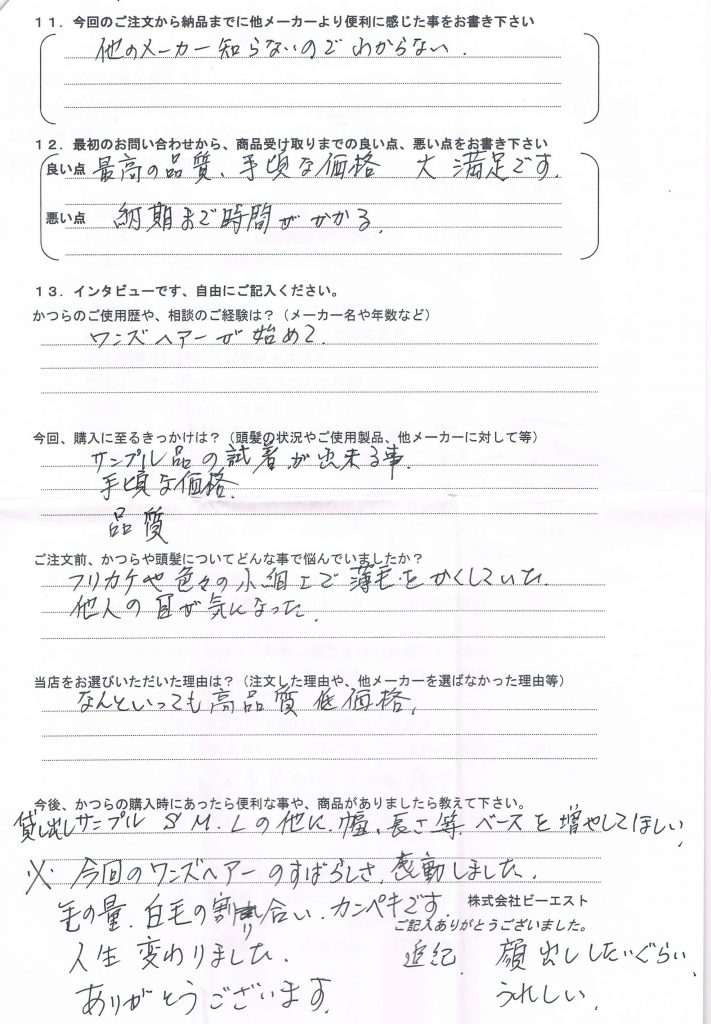 １１．今回のご注文から納品までに他メーカーより便利に感じた事をお書き下さい
他のメーカー知らないのでわからない．
１２．最初のお問い合わせから、商品受け取りまでの良い点、悪い点をお書き下さい
良い点 最高の品質、手頃な価格 大満足です．
悪い点 納期まで時間がかかる．
１３．インタビューです、自由にご記入ください。
かつらのご使用歴や、相談のご経験は？（メーカー名や年数など）
ワンズヘアーが始めて．
今回、購入に至るきっかけは？（頭髪の状況やご使用製品、他メーカーに対して等）
サンプル品の試着が出来る事．
手頃な価格．
品質
ご注文前、かつらや頭髪についてどんな事で悩んでいましたか？
フリカケや色々の小細工で薄毛をかくしていた．
他人の目が気になった．
当店をお選びいただいた理由は？（注文した理由や、他メーカーを選ばなかった理由等）
なんといっても高品質 低価格．
今後、かつらの購入時にあったら便利な事や、商品がありましたら教えて下さい。
貸し出しサンプル S M.Lの他に．幅、長さ等 ベースを増やしてほしい，
※ 今回のワンズヘアーのすばらしさ．感動しました．
毛の量．白毛の割り合い．カンペキです． 株式会社ビーエスト
ご記入ありがとうございました。
人生変わりました． 追紀． 顔出ししたいぐらい，
ありがとうございます． うれしい．